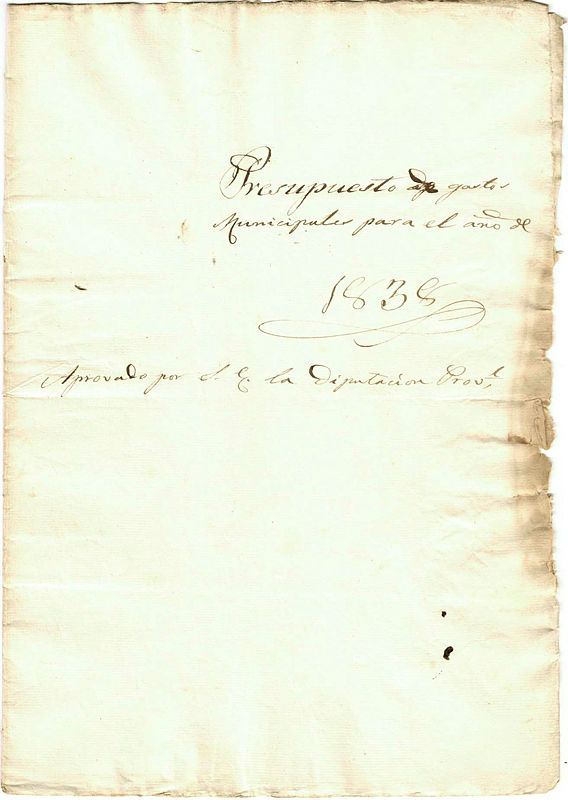 Presupuesto de gastos
Municipales para el año de
1838
Aprovado por S. E. la Diputacion Prov.l